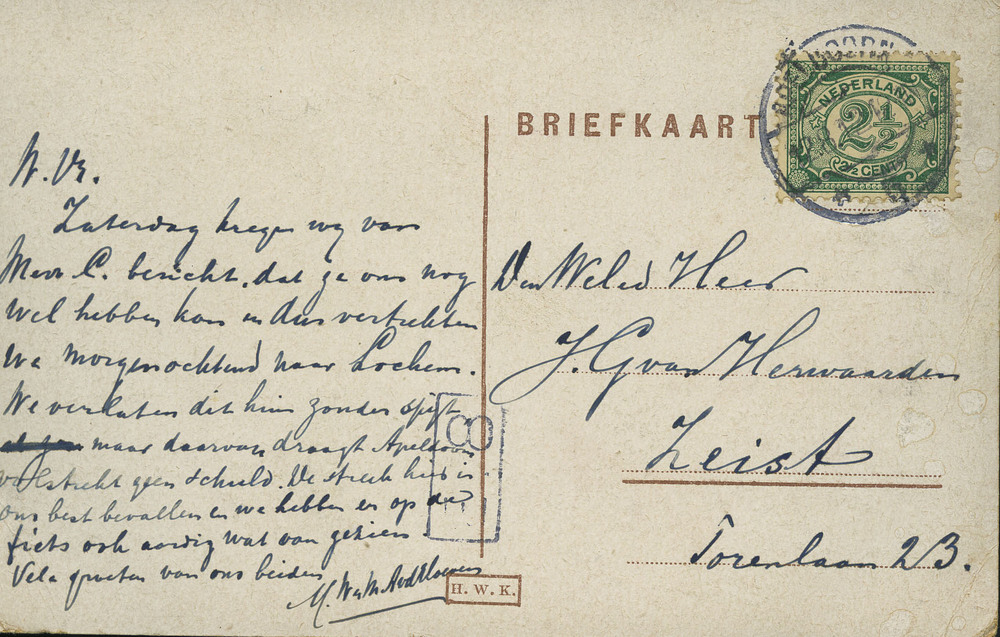 BRIEFKAART
NEDERLAND
2½
2½ CENT
W. Vr.
Zaterdag kregen wy van
Mevr C. bericht, dat ze ons nog
wel hebben kon en dus vertrekken
we morgenochtend naar Lochem.
We verlaten dit huis zonder spijt
maar daarvan draagt Apeldoorn
volstrekt geen schuld. De streek hier is
ons best bevallen en we hebben er op de
fiets ook aardig wat van gezien
Vele groeten van ons beiden
Den Weled Heer
J. G van Herwaarden
Zeist
Torenlaan 23.
H. W. K.